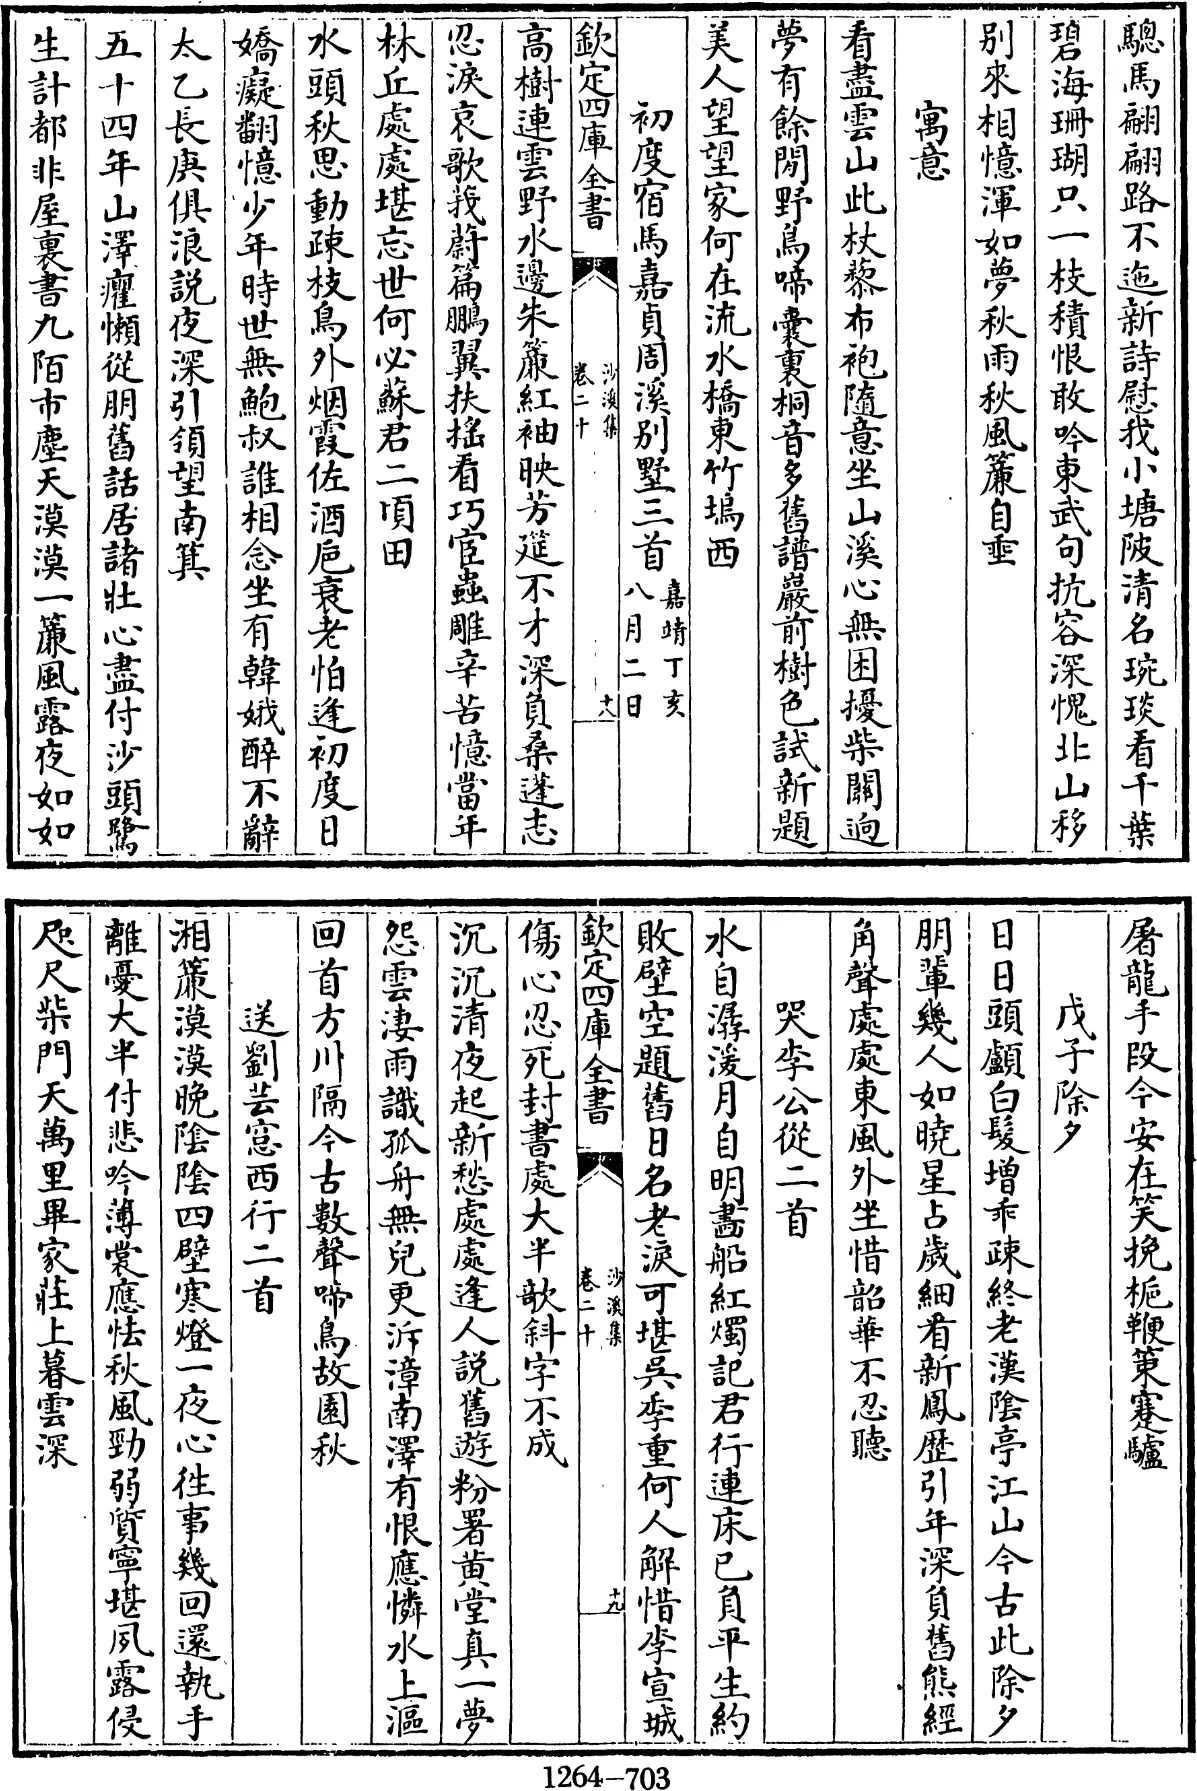 驄馬翩翩路不迤新詩慰我小塘陂清名琬琰看千葉
碧海珊瑚只一枝積恨敢吟東武句抗容深愧北山移
別來相憶渾如夢秋雨秋風簾自垂
寓意
看盡雲山此杖藜布袍隨意坐山溪心無困擾柴關逈
夢有餘閒野鳥啼囊裏桐音多舊譜巖前樹色試新題
美人望望家何在流水橋東竹塢西
初度宿馬嘉貞周溪別墅三首嘉靖丁亥八月二日
欽定四庫全書
沙溪集
卷二十
十八
高樹連雲野水邊朱簾紅袖映芳筵不才深負桑蓬志
忍淚哀歌莪蔚篇鵬翼扶揺看巧宦蟲雕辛苦憶當年
林丘處處堪忘世何必蘇君二頃田
水頭秋思動疎枝鳥外烟霞佐酒巵衰老怕逢初度日
嬌癡翻憶少年時世無鮑叔誰相念坐有韓娥醉不辭
太乙長庚俱浪説夜深引領望南箕
五十四年山澤癯懶從朋舊話居諸壯心盡付沙頭鷺
生計都非屋裏書九陌市塵天漠漠一簾風露夜如如
屠龍手段今安在笑挽梔鞭策蹇驢
戊子除夕
日日頭顱白髮增乖疎終老漢陰亭江山今古此除夕
朋輩幾人如曉星占歲細看新鳳歷引年深負舊熊經
角聲處處東風外坐惜韶華不忍聽
哭李公從二首
水自潺湲月自明畫船紅燭記君行連床已負平生約
敗壁空題舊日名老淚可堪吳季重何人解惜李宣城
欽定四庫全書
沙溪集
卷二十
十九
傷心忍死封書處大半欹斜字不成
沉沉清夜起新愁處處逢人説舊遊粉署黃堂真一夢
怨雲淒雨識孤舟無兒更泝漳南澤有恨應憐水上漚
回首方川隔今古數聲啼鳥故園秋
送劉芸窓西行二首
湘簾漠漠晚陰陰四壁寒燈一夜心往事幾回還執手
離憂大半付悲吟薄裳應怯秋風勁弱質寧堪夙露侵
咫尺柴門天萬里畢家莊上暮雲深
1264—703